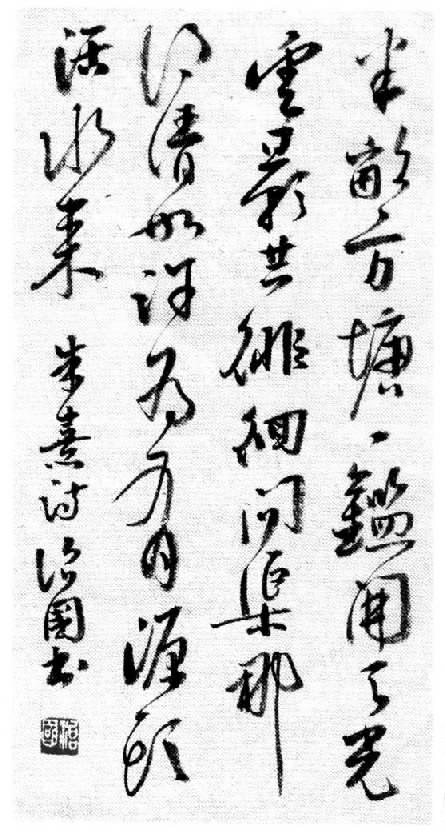 半畝方塘一鑑開天光
雲影共徘徊問渠那
得清如許為有源頭
活水來 朱熹詩 治國書